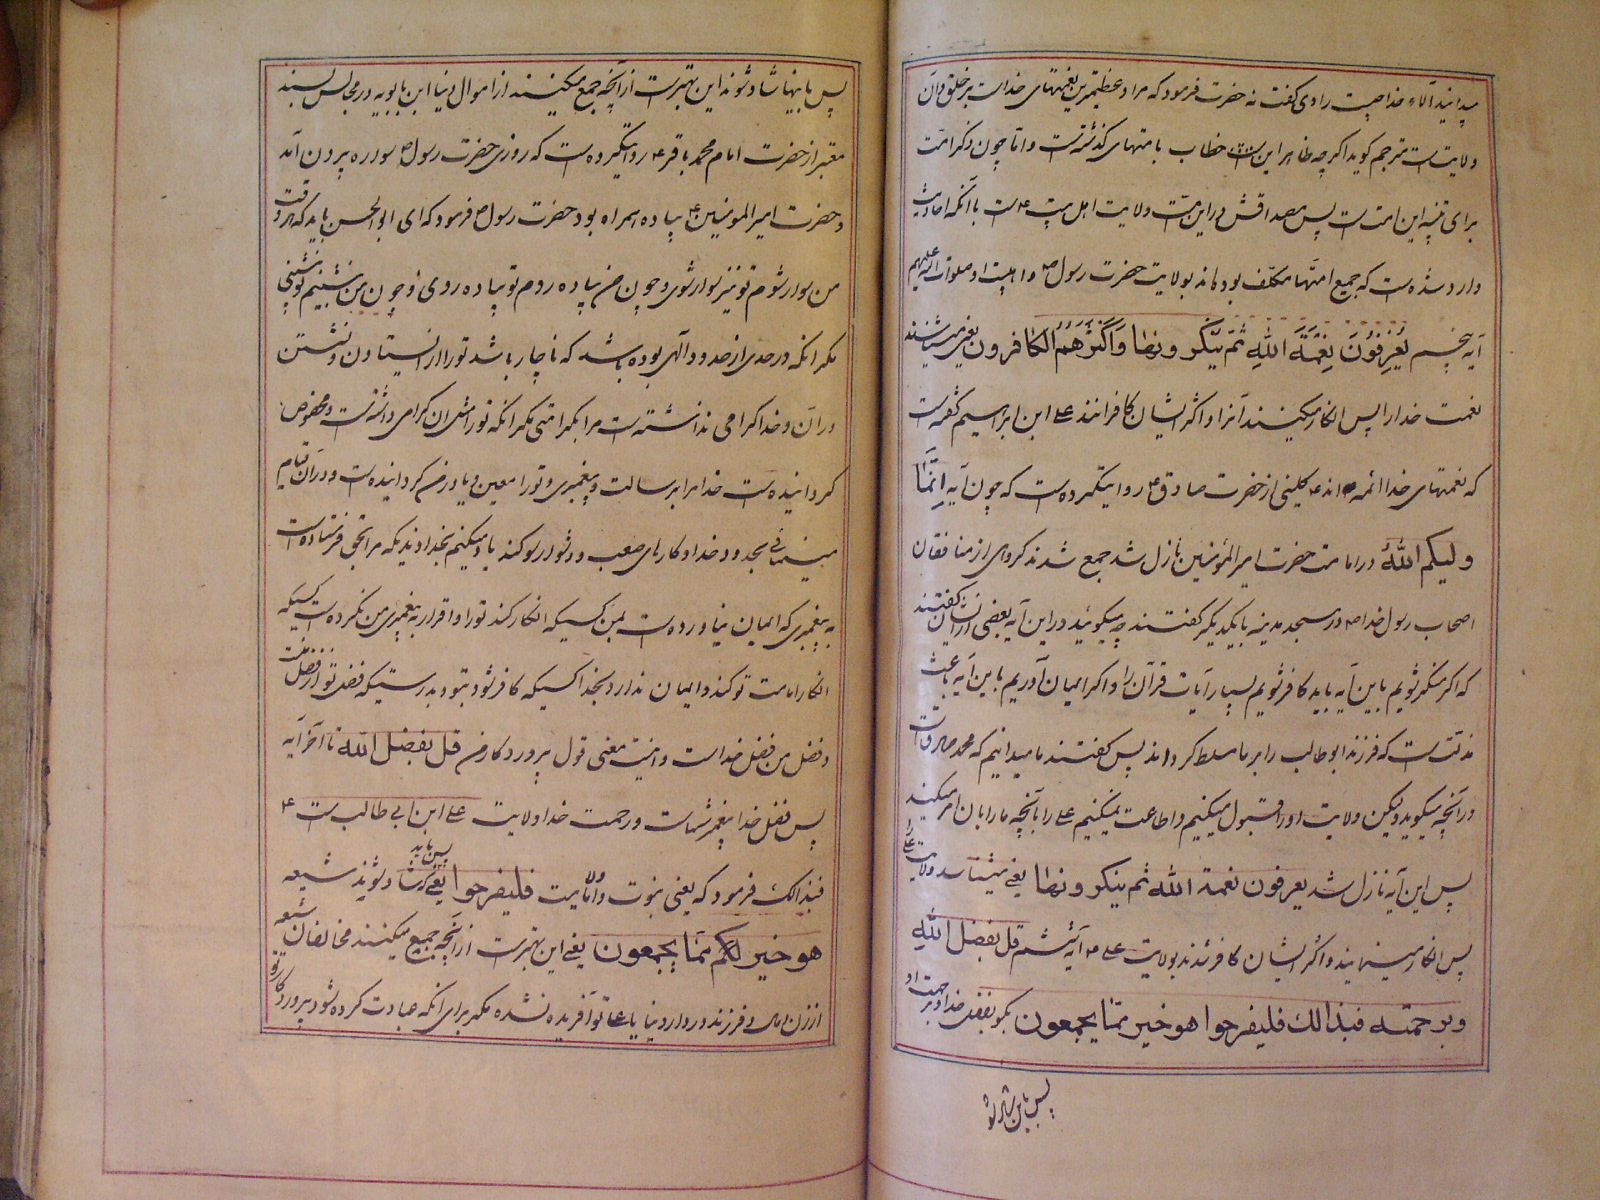 میدانید آلاء خدا چیست راوی گفت نه حضرت فرمود که مراد عظیمترین نعمتهای خداست بر خلق و آن
ولایتست مترجم گوید اگر چه ظاهر این خطاب بامتهای گذشته است و اما چون ذکر امت
برای تنبیه این امت است پس مصداقش در این امت ولایت اهل بیت ع است با آنکه احادیث
وارد شده است که جمیع امتها مکلف بوده‌اند بولایت حضرت رسول ص و اهلبیت او صلوات الله علیهم
آیه پنجم یَعْرِفُونَ نِعْمَةَ اللهِ ثُمَّ یُنْکِرُونَها وَاَکْثَرُهُمُ الکافرون یعنی میشناسند
نعمت خدا را پس انکار میکنند آنرا و اکثر ایشان کافرانند علی ابن ابراهیم گفته است
که نعمتهای خدا ائمه اند ع کلینی از حضرت صادق ع روایتکرده است که چون آیه اِنَّمَا
ولیکم اللهُ در امامت حضرت امیر المؤمنین نازل شد جمع شدند گروهی از منافقان
اصحاب رسول خدا ص در مسجد مدینه با یکدیگر گفتند چه میگوئید در این آیه بعضی از ایشان گفتند
که اگر منکر شویم باین آیه باید کافر شویم بسایر آیات قرآن و اگر ایمان آوریم باین آیه باعث
مذلتست که فرزند ابو طالب را بر ما مسلط گرداند پس گفتند ما میدانیم که محمد صادق است
در آنچه میگوید ولیکن ولایت او را قبول میکنیم و اطاعت نمیکنیم علی را بآنچه ما را بآن امر میکند
پس این آیه نازل شد یعرفون نعمة الله ثم ینکرونها یعنی میشناسند ولایت علی را
پس انکار مینمایند و اکثر ایشان کافرند بولایت علی ع آیه ششم قل بفضل اللهِ
وبرحمته فبذالک فلیفرحوا هو خیر مما یجمعون بگو بفضل خدا و برحمت او
پس باین شاد شوند
پس باینها شاد شوند این بهتر است از آنچه جمع میکنند از اموال دنیا ابن بابویه در مجالس بسند
معتبر از حضرت امام محمد باقر ع روایتکرده است که روزی حضرت رسول ص سواره بیرون آمد
و حضرت امیر المومنین ع پیاده همراه بود حضرت رسول ص فرمود که ای ابو الحسن باید که هر وقت
من سوار شوم تو نیز سوار شوی و چون من پیاده روم تو پیاده روی و چون من بنشینم تو بنشینی
مگر آنکه در حدی از حدود الهی بوده باشد که ناچار باشد تو را از ایستادن و نشستن
در آن و خدا گرامی نداشته است مرا بکرامتی مگر آنکه تو را مثل آن گرامی داشته است و مخصوص
گردانیده است خدا مرا برسالت و پیغمبری و تو را معین و یاور من گردانیده است و در آن قیام
مینمائی بحدود خدا و کارهای صعب و دشوار سوگند یاد میکنم بخداوندیکه مرا بحق فرستاده است
به پیغمبری که ایمان نیاورده است بمن کسیکه انکار کند تو را و اقرار به پیغمبری من نکرده است کسیکه
انکار امامت تو کند و ایمان ندارد بخدا کسیکه کافر شود بتو و بدرستیکه فضل تو از فضل منست
و فضل من فضل خداست و اینست معنی قول پروردگار من قل بفضل الله تا آخر آیه
پس فضل خدا پیغمبر شماست و رحمت خدا ولایت علی ابن ابی طالب است ع
فبذالک فرمود که یعنی بنبوت و ولایت فلیفرحوا یعنی پس باید که شاد شوند شیعه
هو خیر لکم مما یجمعون یعنی این بهتر است از آنچه جمع میکنند مخالفان شیعه
از زن و مال و فرزند در دار دنیا یا علی تو آفریده نشده مگر برای آنکه عبادت کرده شود پروردگار تو